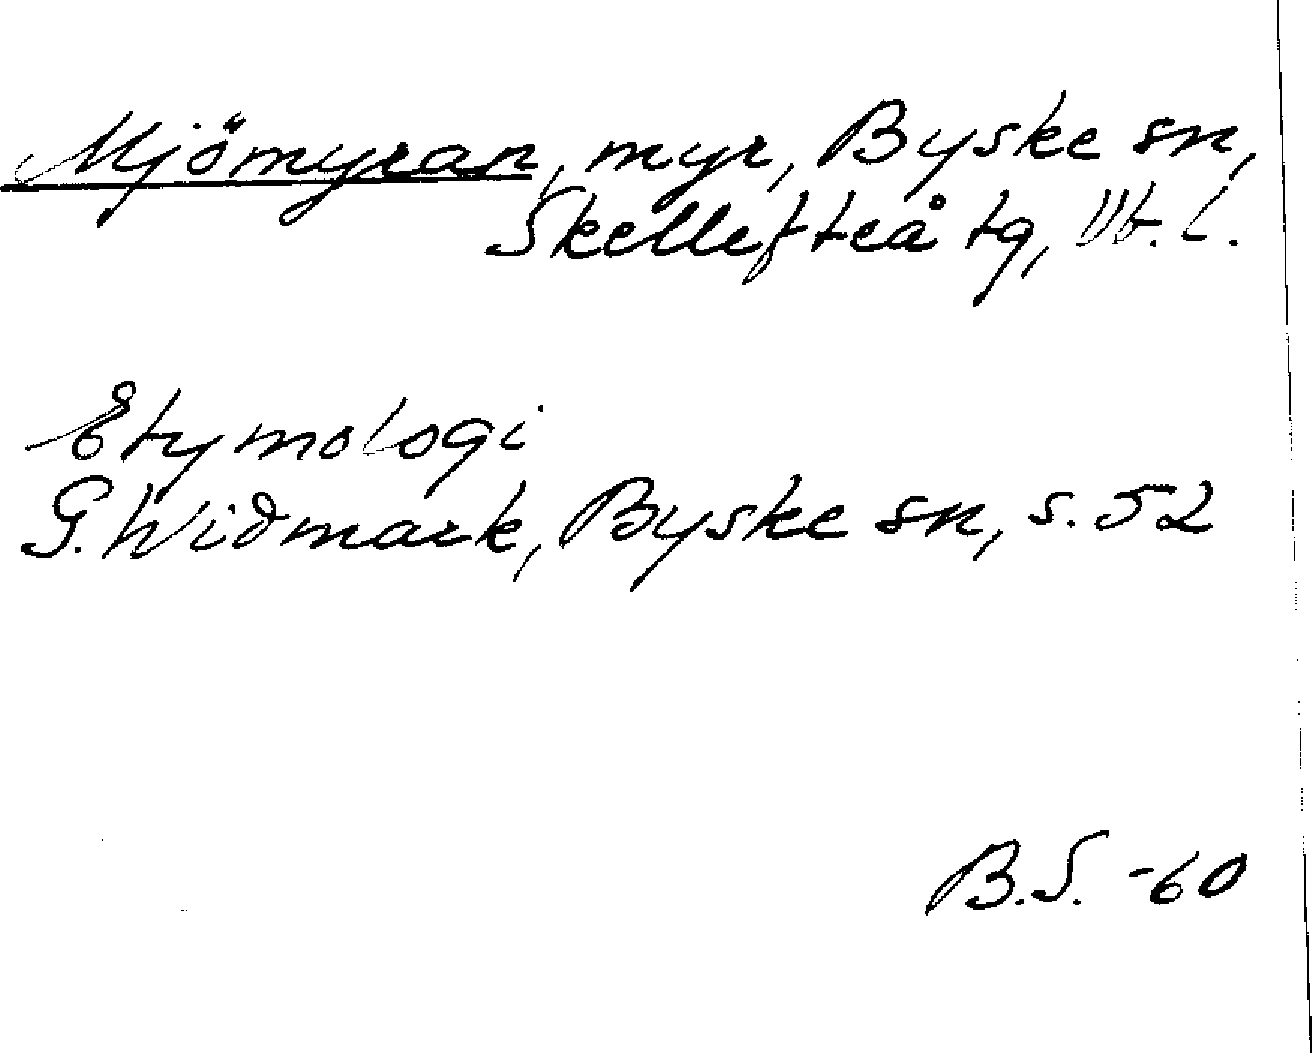 Mjömyran, myr, Byske sn,
Skellefteå tg, Vb. l.
Etymologi
G. Widmark, Byske sn, s. 52
B.S. -60